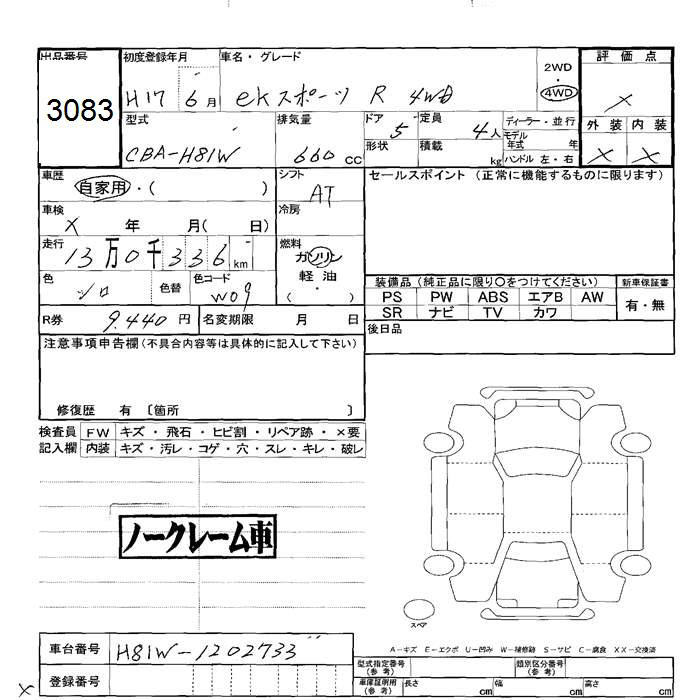 出品番号 初度登録年月 車名・グレード 評価点
3083 H17 6月 ekスポーツ R 4WD 2WD・4WD ×
型式 排気量 ドア 定員 ディーラー・並行 外装 内装
CBA-H81W 660cc 5 4人 モデル年式 年 × ×
形状 積載 kg ハンドル 左・右
車歴 シフト セールスポイント (正常に機能するものに限ります)
自家用・( ) AT
車検 冷房
× 年 月( 日)
走行 燃料
13万0千336km ガソリン
軽油
・
( )
色 色替 色コード
シロ W09
装備品 (純正品に限り○をつけてください) 新車保証書
PS PW ABS エアB AW 有・無
SR ナビ TV カワ
R券 9,440円 名変期限 月 日
後日品
注意事項申告欄 (不具合内容等は具体的に記入して下さい)
修復歴 有 〔箇所 〕
検査員 FW キズ・飛石・ヒビ割・リペア跡・×要
記入欄 内装 キズ・汚レ・コゲ・穴・スレ・キレ・破レ
ノークレーム車
スペア
A-キズ E-エクボ U-凹み W-補修跡 S-サビ C-腐食 XX-交換済
車台番号 H81W-1202733
登録番号
型式指定番号(参考) 類別区分番号(参考)
車庫証明用(参考) 長さ cm 幅 cm 高さ cm
×